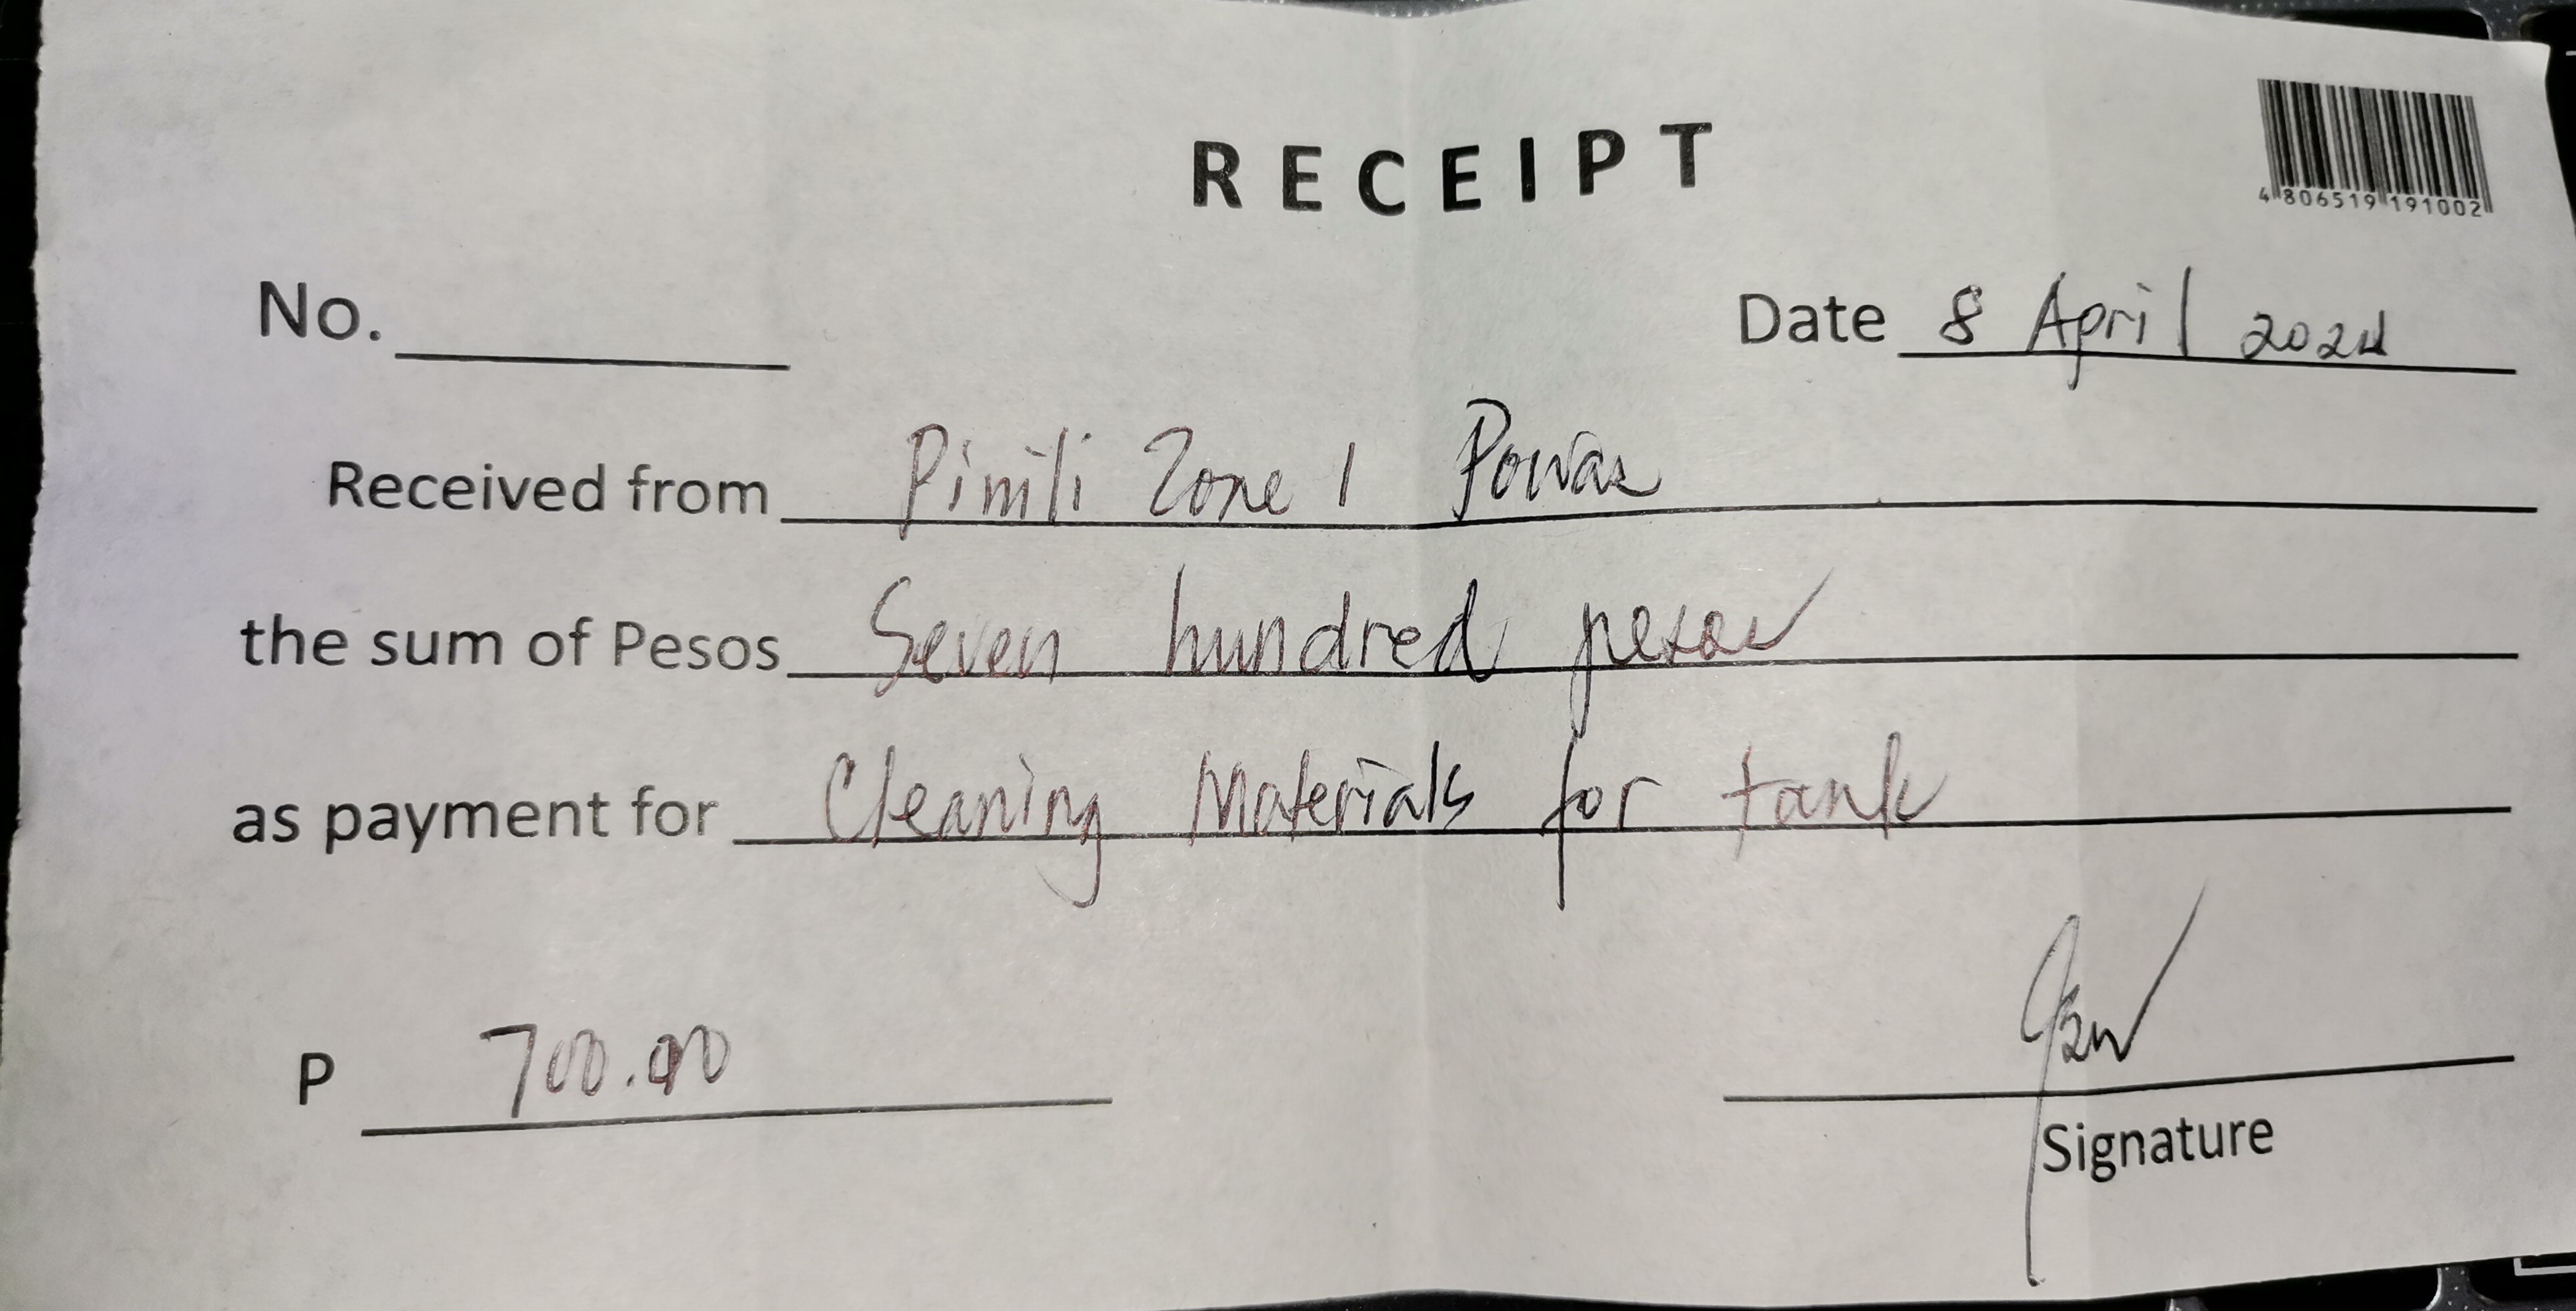 RECEIPT
4 806519 191002
No. Date 8 April 2024
Received from Pinili Zone 1 Powas
the sum of Pesos Seven hundred pesos
as payment for Cleaning Materials for tank
P 700.00
Signature